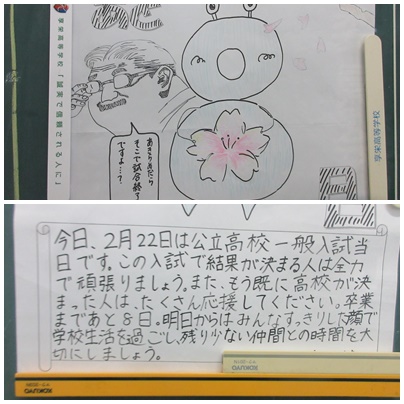 享栄高等学校「誠実で信頼される人に」
あきらめたら
そこで試合終了
ですよ…?
享栄高等学校
今日、2月22日は公立高校一般入試当
日です。この入試で結果が決まる人は全力
で頑張りましょう。また、もう既に高校が決
まった人は、たくさん応援してください。卒業
まであと8日。明日からはみんなすっきりした顔で
学校生活を過ごし、残り少ない仲間との時間を大
切にしましょう。
KOKUYO
KOKUYO